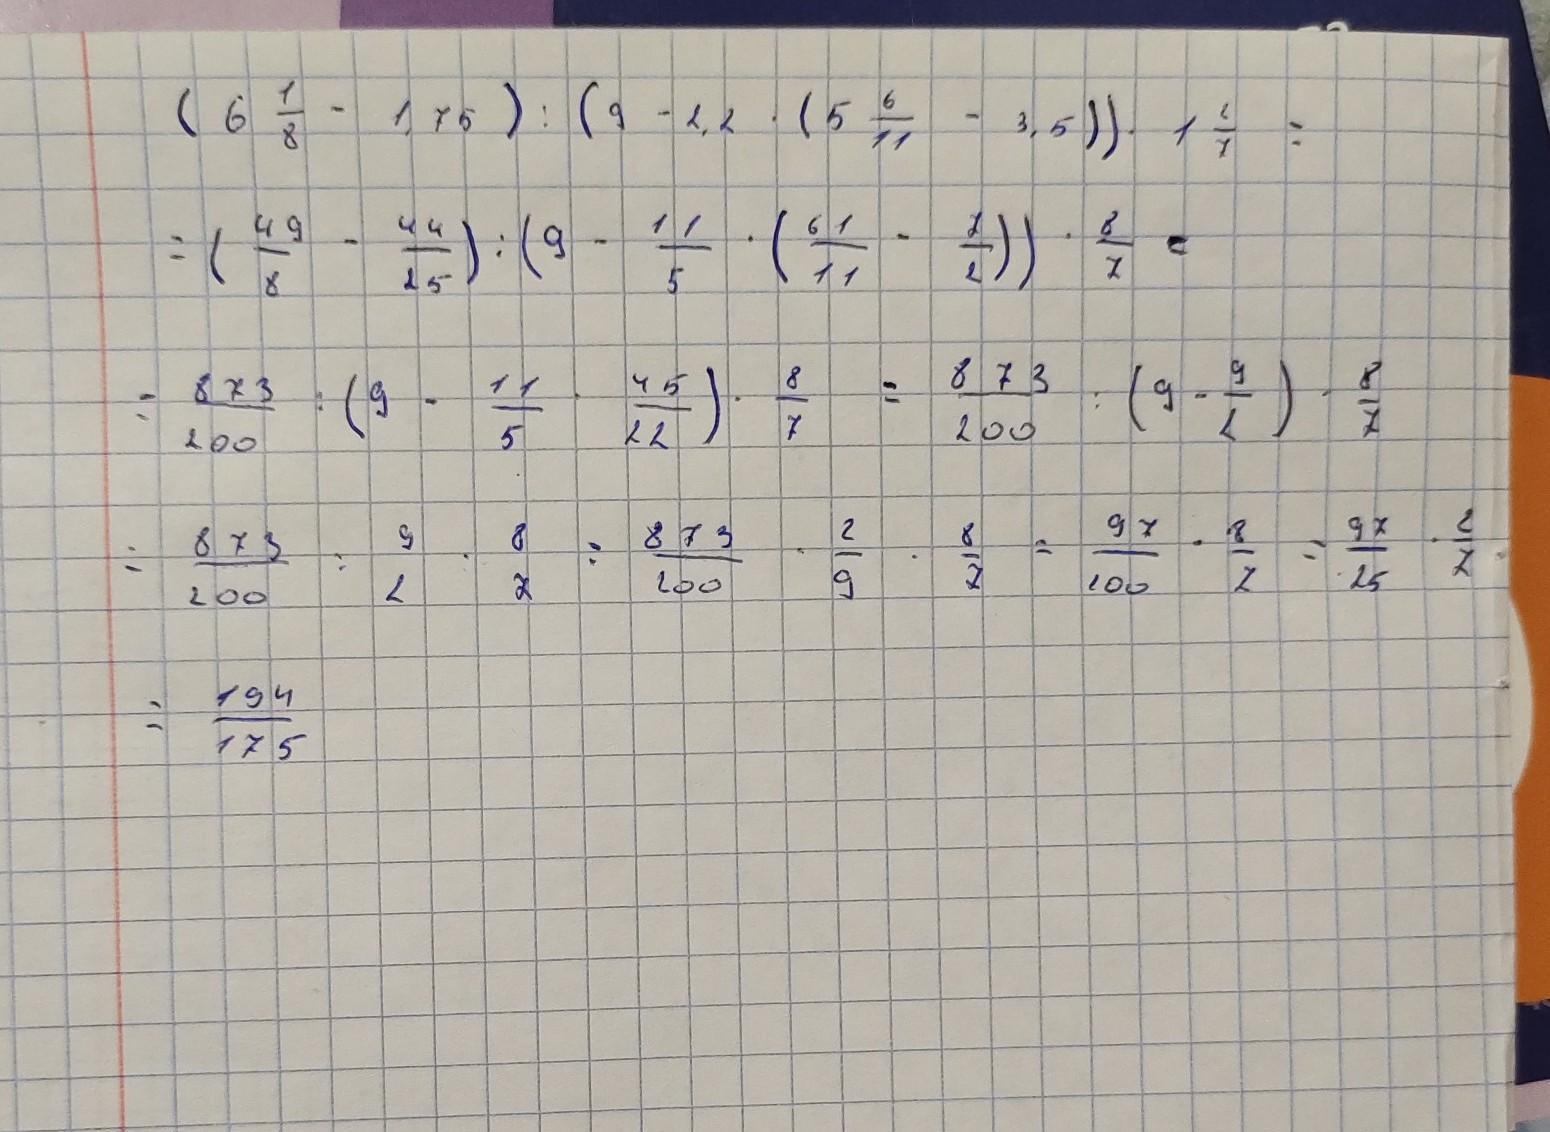 ( 6 1/8 - 1,75 ) : ( 9 - 2,2 · ( 5 6/11 - 3,5 )) · 1 1/7 =
= ( 49/8 - 44/25 ) : ( 9 - 11/5 · ( 61/11 - 7/2 )) · 8/7 =
= 873/200 : ( 9 - 11/5 · 45/22 ) · 8/7 = 873/200 : ( 9 - 9/2 ) · 8/7
= 873/200 : 9/2 · 8/7 = 873/200 · 2/9 · 8/7 = 97/100 · 8/7 = 97/25 · 2/7
= 194/175